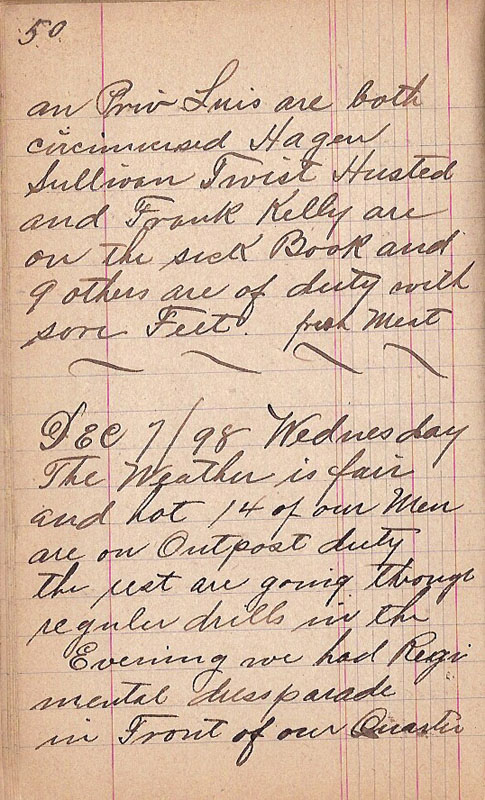 50
an Priv Luis are both
circimursed Hagen
Sullivan Twist Husted
and Frank Kelly are
on the sick Book and
9 others are of duty with
sore Feet. fresh Meat
DEC 7/98 Wednesday
The Weather is fair
and hot 14 of our Men
are on Outpost duty
the rest are going through
reguler drills in the
Evening we had Regi
mental dressparade
in Front of our Quarter